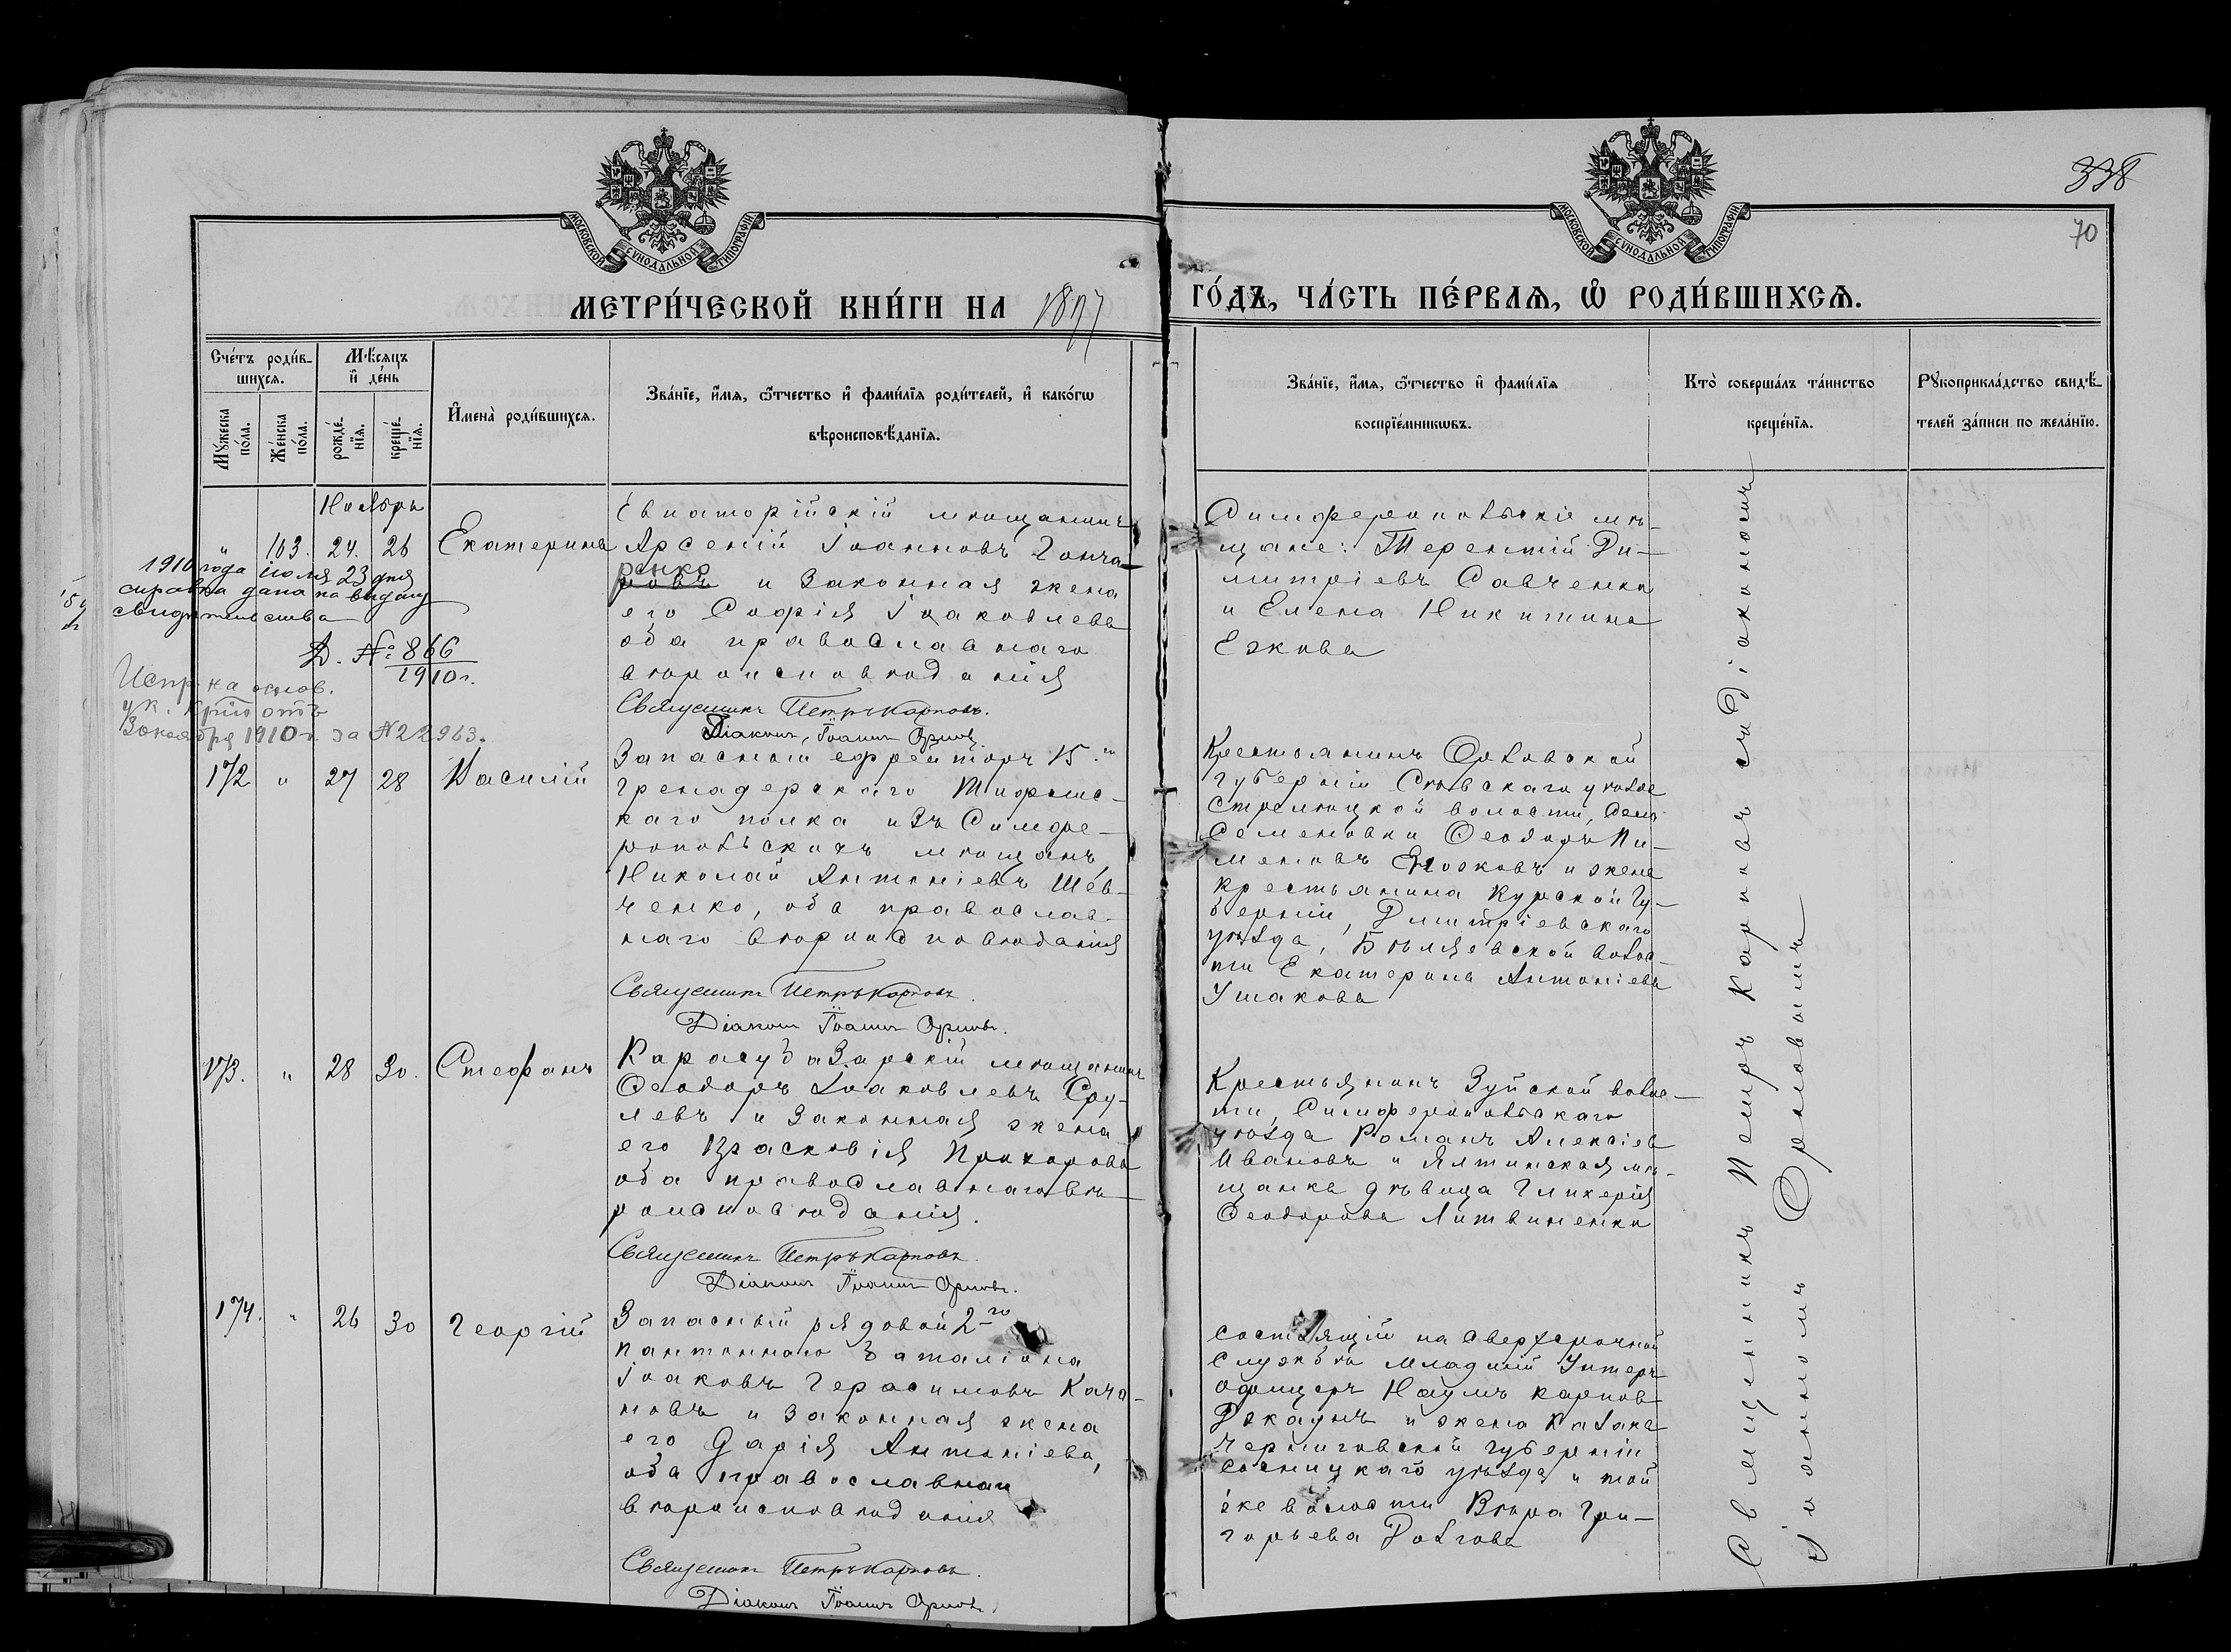 338
70
МОСКОВСКОЙ СѴНОДАЛЬНОЙ ТИПОГРАФІИ
МОСКОВСКОЙ СѴНОДАЛЬНОЙ ТИПОГРАФІИ
МЕТРИ́ЧЕСКОЙ КНИ́ГИ НА 1897
ГО́ДЪ, ЧА́СТЬ ПЕ́РВАѦ, Ѡ҆ РОДИ́ВШИХСѦ.
Сче́тъ роди́в-
шихсѧ.
Мѣ́сѧцъ
и҆ де́нь
Мꙋ́жеска
по́ла.
Же́нска
по́ла.
рожде́-
нїѧ.
креще́-
нїѧ.
И҆мена̀ роди́вшихсѧ.
Зва́нїе, и҆́мѧ, ѻ҆́тчество и҆ фамѝлїѧ роди́телей, и҆ како́гѡ
вѣроисповѣ́данїѧ.
Зва́нїе, и҆́мѧ, ѻ҆́тчество и҆ фамѝлїѧ
воспрїе́мникѡвъ.
Кто̀ соверша́лъ та́инство
креще́нїѧ.
Рꙋкоприкла́дство свидѣ́-
телей за́писи по жела́нїю.
Ноябрь
" 163. 24. 26 Екатерина
Евпаторійскій мѣщанинъ
Арсеній Іоанновъ Гонча-
ренко
ровъ и законная жена
его Софія Іаковлева
оба православнаго
вѣроисповѣданія
Священникъ Петръ Карповъ.
Діаконъ Іоаннъ Орловъ.
Симферопольскіе мѣ-
щане: Терентій Ди-
митріевъ Савченко
и Елена Никитина
Ежова
1910 года іюля 23 дня
справка дана на выдачу
свидѣтельства
Д. № 866
1910 г.
Испр. на основ.
ук. отъ
1910 г. за № 22963.
172 " 27 28 Василій
Запасной ефрейторъ 15.го
Гренадерскаго Тифлис-
каго полка изъ Симфе-
ропольскихъ мѣщанъ
Николай Антоніевъ Шев-
ченко, оба православ-
наго вѣроисповѣданія
Священникъ Петръ Карповъ.
Діаконъ Іоаннъ Орловъ.
Крестьянинъ Орловской
губерніи Сѣвскаго уѣзда
Стрелецкой волости, дер.
Семеновки Ѳеодоръ Пи-
меновъ и жена
крестьянина Курской Гу-
берніи, Дмитріевскаго
уѣзда, волос-
ти Екатерина Антоніева
Ушакова
173. " 28 30. Стефанъ
Карасубазарскій мѣщанинъ
Ѳеодоръ Іаковлевъ Сру-
левъ и законная жена
его Прасковія Прохорова
оба православнаго вѣ-
роисповѣданія.
Священникъ Петръ Карповъ.
Діаконъ Іоаннъ Орловъ.
Крестьянинъ Зуйской волос-
ти, Симферопольскаго
уѣзда Романъ Алексіев
Ивановъ и Ялтинская мѣ-
щанка дѣвица Гликерія
Ѳеодорова Литвиненко
174. " 26 30 Георгій
Запасный рядовой 2-го
понтоннаго баталіона
Іаковъ Герасимовъ Кача-
новъ и законная жена
его Дарія Антоніева,
оба православнаго
вѣроисповѣданія
Священникъ Петръ Карповъ.
Діаконъ Іоаннъ Орловъ.
состоящій на сверхсрочной
службѣ младшій Унтеръ
офицеръ Наумъ Карпов
Джаунъ и жена казака
Черниговской губерніи
Сосницкаго уѣзда и той
же волости Вѣра Гри-
горьева Долгова
Священникъ Петръ Карповъ съ діакономъ
Іоанномъ Орловымъ